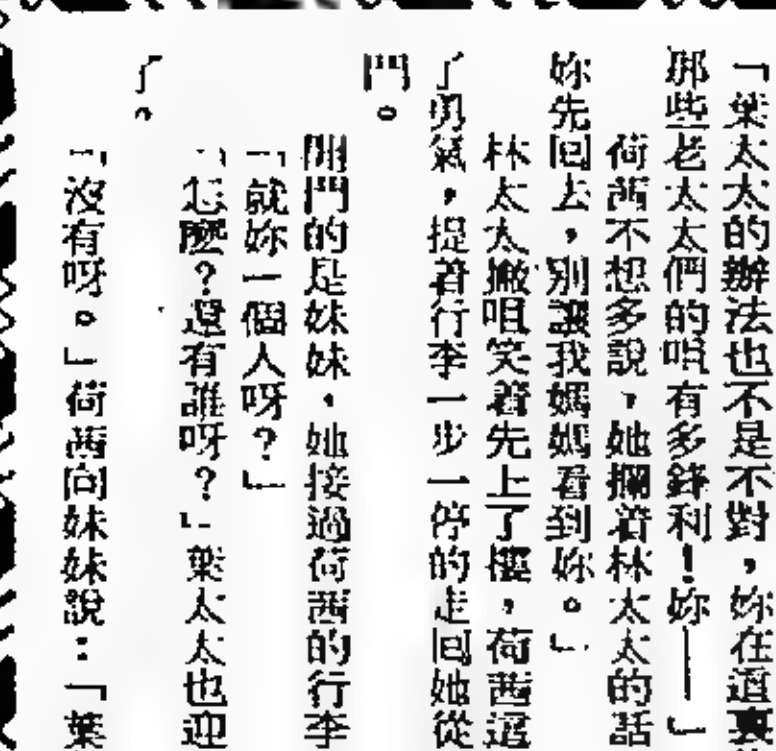 「葉太太的辦法也不是不對，妳在這裏
那些老太太們的眼有多鋒利！妳——」
荷茜不想多說，她攔着林太太的話
妳先回去，別讓我媽媽看到妳。」
林太太撇咀笑着先上了樓，荷茜這
了勇氣，提着行李一步一停的走回她從
門。
開門的是妹妹，她接過荷茜的行李
「就妳一個人呀？」
「怎麼？還有誰呀？」葉太太也迎
了。
「沒有呀。」荷茜向妹妹說：「葉